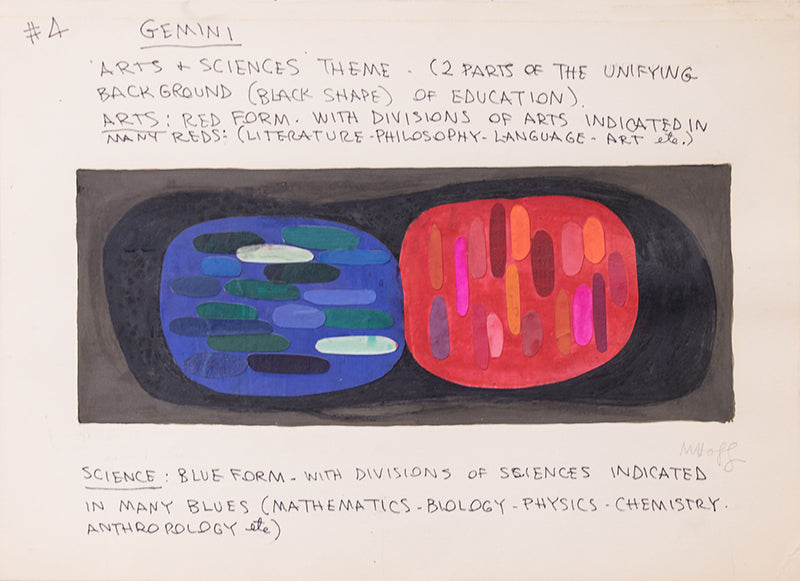 #4
GEMINI
'ARTS + SCIENCES' THEME - (2 PARTS OF THE UNIFYING
BACKGROUND (BLACK SHAPE) OF EDUCATION).
ARTS: RED FORM - WITH DIVISIONS OF ARTS INDICATED IN
MANY REDS: (LITERATURE - PHILOSOPHY - LANGUAGE - ART etc.)
MHoff
SCIENCE: BLUE FORM - WITH DIVISIONS OF SCIENCES INDICATED
IN MANY BLUES (MATHEMATICS - BIOLOGY - PHYSICS - CHEMISTRY.
ANTHROPOLOGY etc)